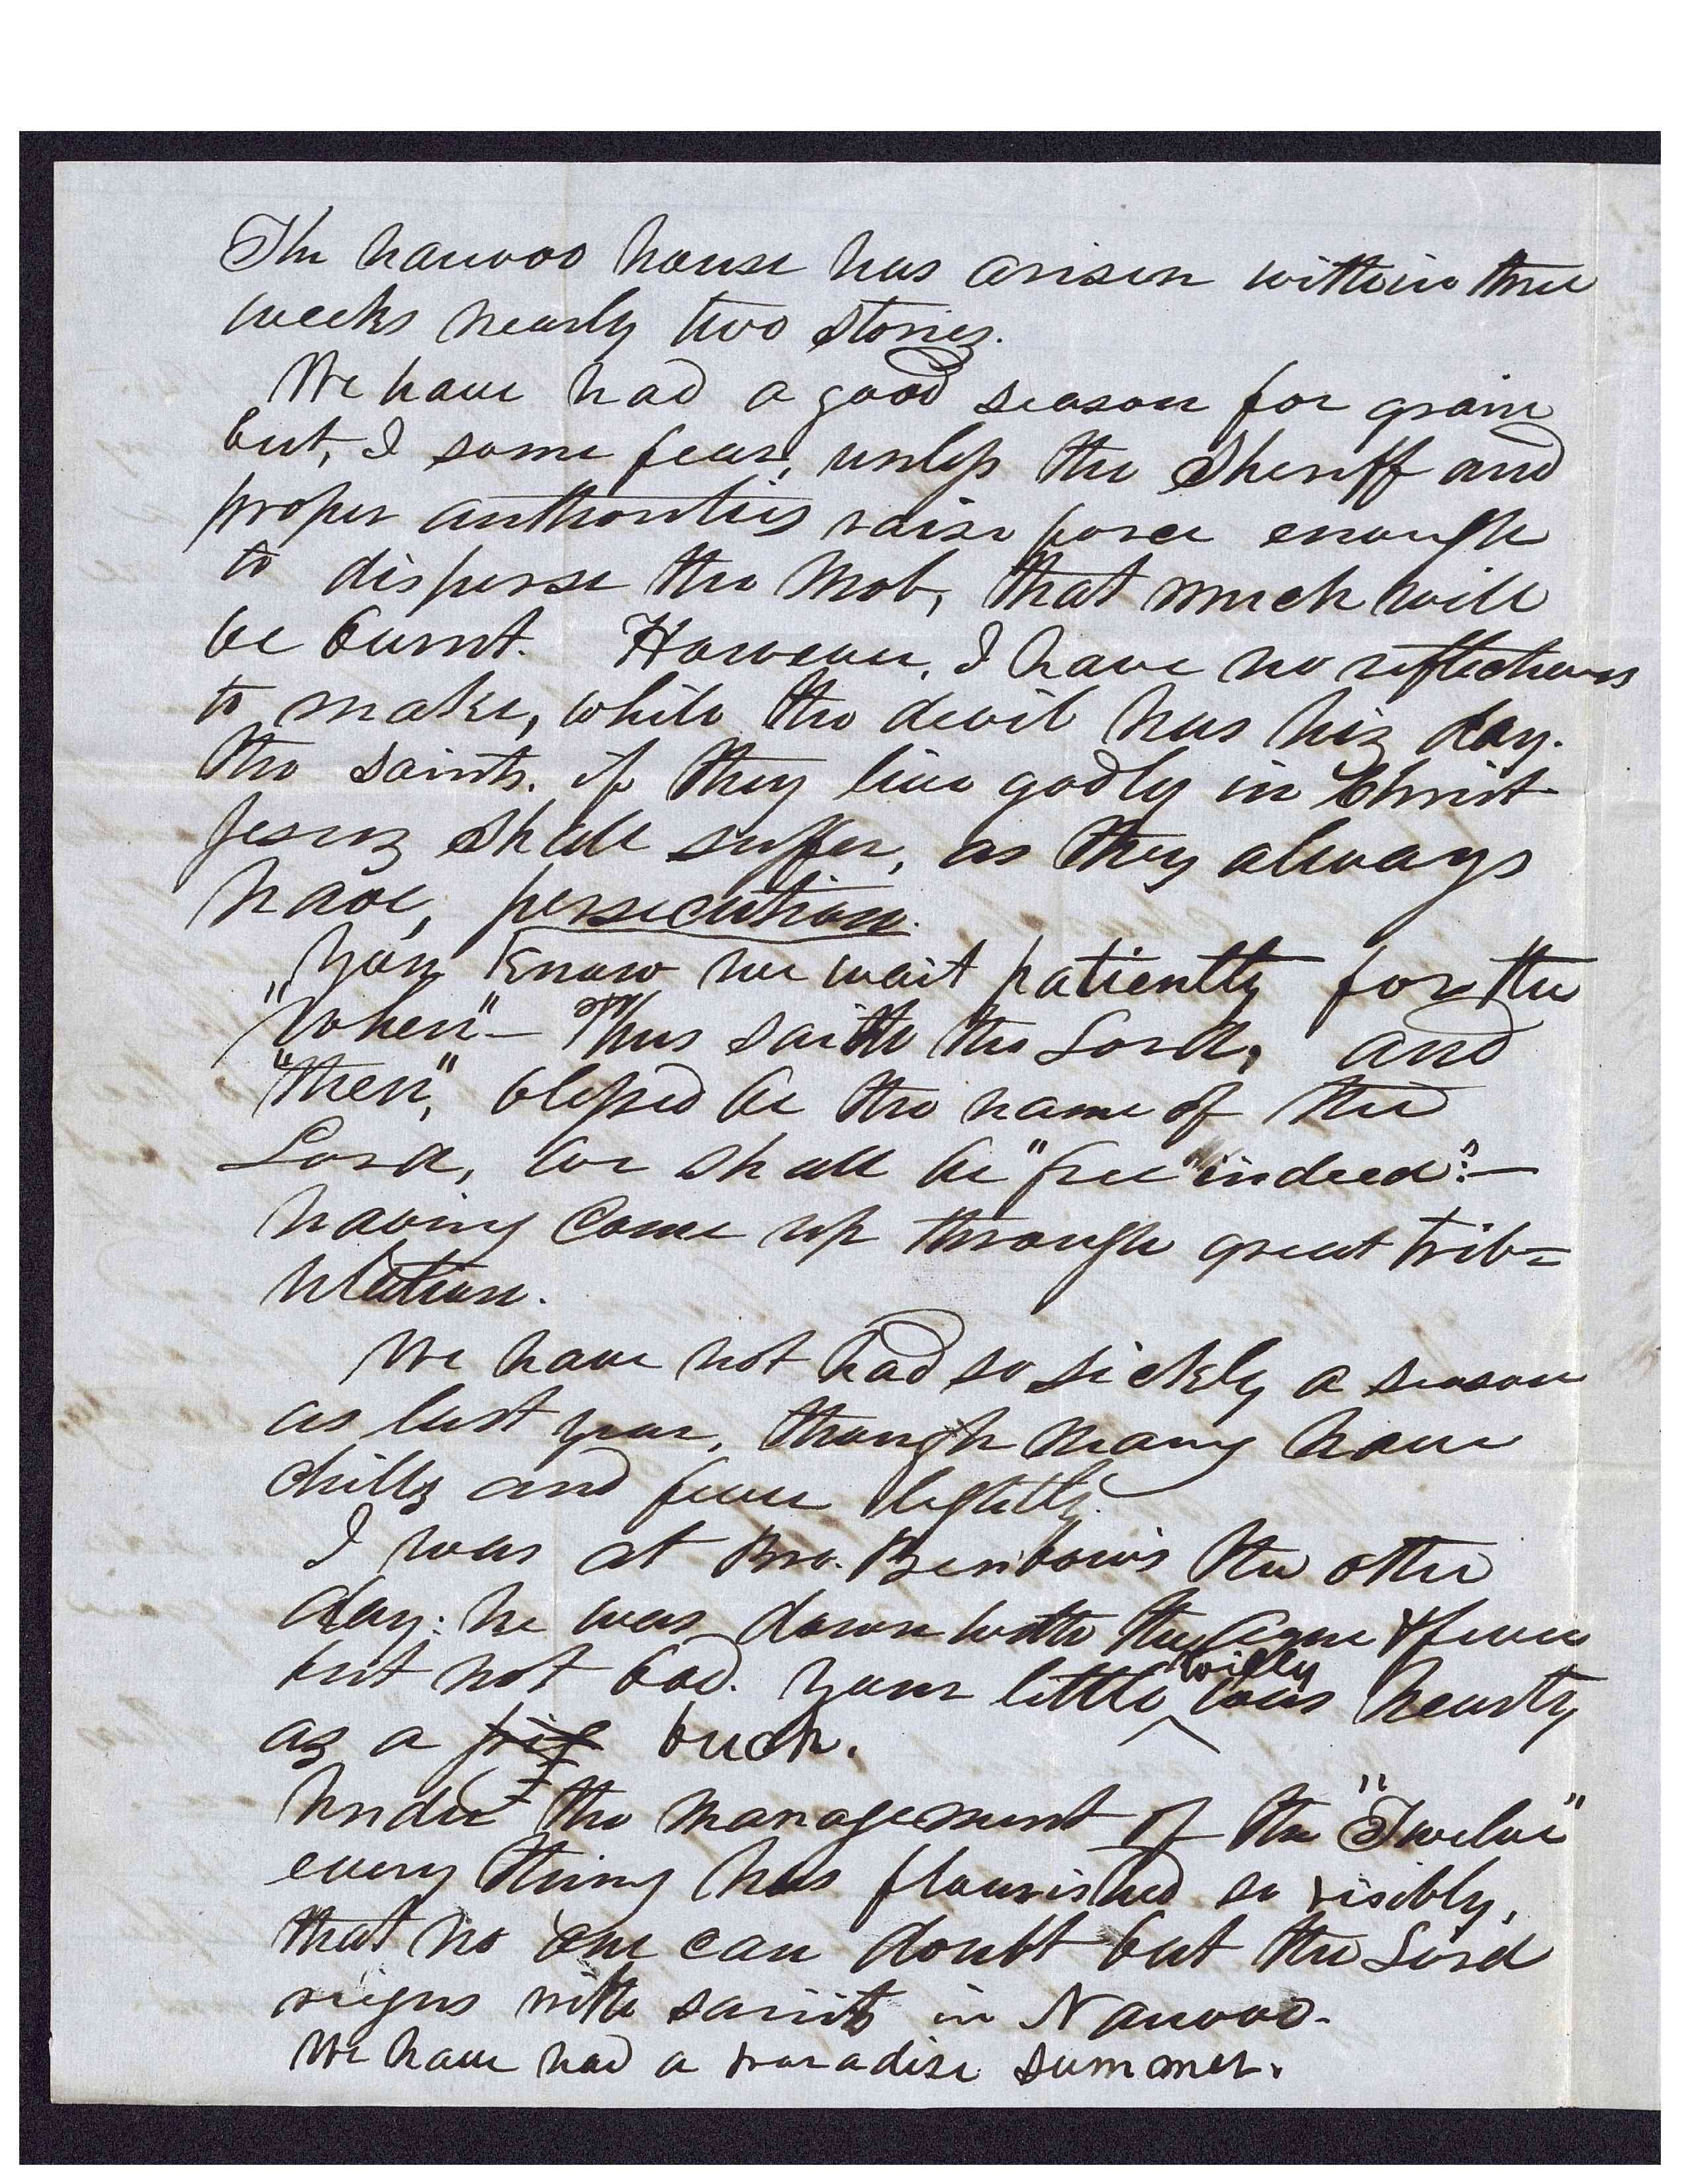 The nauvoo house has arisen within three
weeks nearly two stories.
We have had a good season for grain
but, I some fear, unless the Sheriff and
proper authorities raise force enough
to disperse the Mob, that much will
be burnt. However, I have no reflections
to make, while the devil has his day.
the saints, if they live godly in Christ
Jesus shall suffer, as they always
have, persecution.
You know we wait patiently for the
"When" — Thus saith the Lord, and
"then", blessed be the name of the
Lord, we shall be "free" "indeed": —
having come up through great trib=
ulation.
We have not had so sickly a season
as last year, though many have
chills and fever lightly.
I was at Bro. Benbow's the other
day: he was down with the ague & fever
but not bad. Your little ^Willy was hearty
as a pig buck.
Under the management of the "Twelve"
every thing has flourished so visibly,
that no one can doubt but the Lord
reigns with saints in Nauvoo.
We have had a paradise summer.